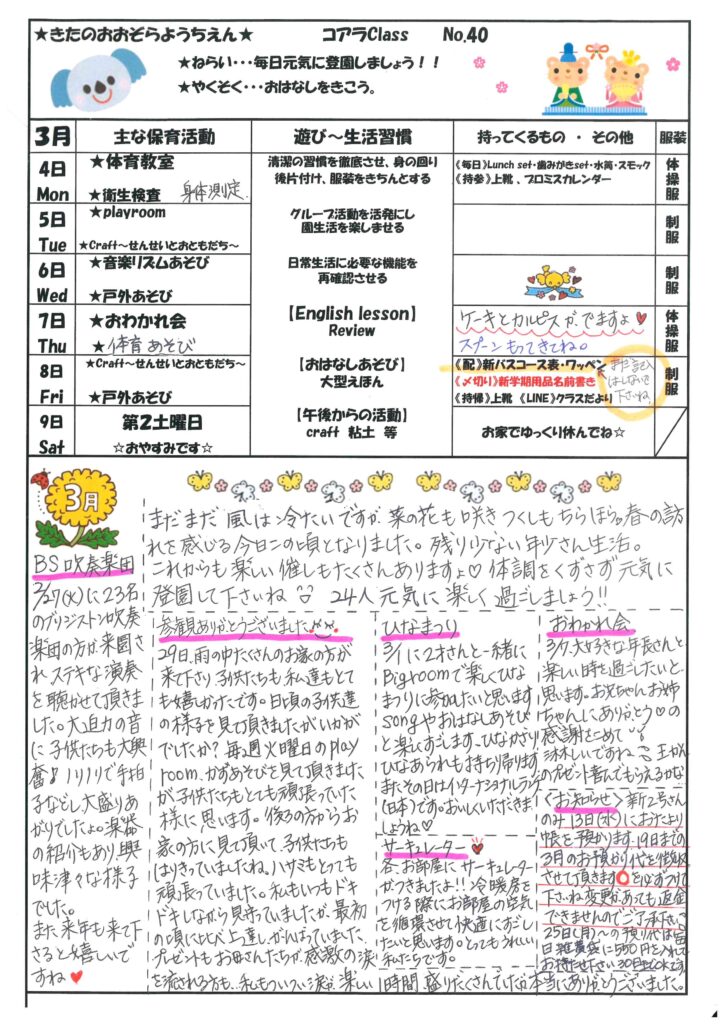 ★きたのおおぞらようちえん★ コアラClass No.40
★ねらい・・・毎日元気に登園しましょう！！
★やくそく・・・おはなしをきこう。
3月 主な保育活動 遊び～生活習慣 持ってくるもの ・ その他 服装
4日 Mon
★体育教室
★衛生検査 身体測定
清潔の習慣を徹底させ、身の回り
後片付け、服装をきちんとする
《毎日》Lunch set・歯みがきset・水筒・スモック
《持参》上靴 、プロミスカレンダー
体操服
5日 Tue
★playroom
★Craft～せんせいとおともだち～
グループ活動を活発にし
園生活を楽しませる
制服
6日 Wed
★音楽リズムあそび
★戸外あそび
日常生活に必要な機能を
再確認させる
制服
7日 Thu
★おわかれ会
★体育あそび
【English lesson】
Review
ケーキとカルピスがでますよ♥
スプーンもってきてね。
体操服
8日 Fri
★Craft～せんせいとおともだち～
★戸外あそび
【おはなしあそび】
大型えほん
《配》新バスコース表・ワッペン
《〆切り》新学期用品名前書き
《持帰》上靴 《LINE》クラスだより
まだ記入
はしないで
下さいね
制服
9日 Sat
第2土曜日
☆おやすみです☆
【午後からの活動】
craft 粘土 等
お家でゆっくり休んでね☆
3月
まだまだ風は冷たいですが、菜の花も咲きつくしもちらほら。春の訪
れを感じる今日この頃となりました。残り少ない年少さん生活。
これからも楽しい催しもたくさんありますよ♡ 体調をくずさず元気に
登園して下さいね 24人元気に楽しく過ごしましょう!!
BS吹奏楽団
2/27(火)に23名
のブリジストン吹奏
楽団の方が来園さ
れステキな演奏
を聴かせて頂きま
した。大迫力の音
に子供たちも大興
奮♪ノリノリで手拍
子などし、大盛りあ
がりでしたよ。楽器
の紹介もあり、興
味津々な様子
でした。
また来年も来て下
さると嬉しいで
すね♥
参観ありがとうございました
29日、雨の中たくさんのお家の方が
来て下さり、子供たちも私達もとて
も嬉しかったです。日頃の子供達
の様子を見て頂きましたがいかが
でしたか？毎週火曜日のplay
room、かずあそびを見て頂きました
が子供たちもとても頑張っていた
様に思います。後ろの方からお
家の方に見て頂いて、子供たちも
はりきっていましたね。ハサミもとっても
頑張っていました。私もいつもドキ
ドキしながら見守っていましたが、最初
の頃にくらべ上達し、がんばっていました。
プレゼントもお母さんたちが感激の涙
を流される方も、私もついつい涙が。楽しい1時間、盛りだくさんでしたが本当にありがとうございました。
ひなまつり
3/1に2才さんと一緒に
Bigroomで楽しくひな
まつりに参加したいと思います
songやおはなしあそび
と楽しくすごします。ひなかざり
ひなあられも持ち帰ります
またその日はインターナショナルランチ
(日本)です。おいしくいただきま
しょうね♡
サーキュレーター♥
各、お部屋にサーキュレーター
がつきましたよ!! 冷暖房を
つける際にお部屋の空気
を循環させて快適にすごし
たいと思います。とってもうれしい
私たちです。
おわかれ会
3/7、大好きな年長さんと
楽しい時を過ごしたいと
思います。お兄ちゃんお姉
ちゃんにありがとう♡の
感謝をこめて
淋しいですね
のプレゼント喜んでもらえるかな
〈お知らせ〉新2号さん
のみ13日(水)におたより
帳を預かります。19日までの
3月のお預かり代を
させて頂きます。○を必ずつけて
下さいね 変更があっても返金
できませんのでご了承下さい
25日(月)への預り代は毎
日雑費袋に550円を入れて
お持たせ下さい30日までOKです